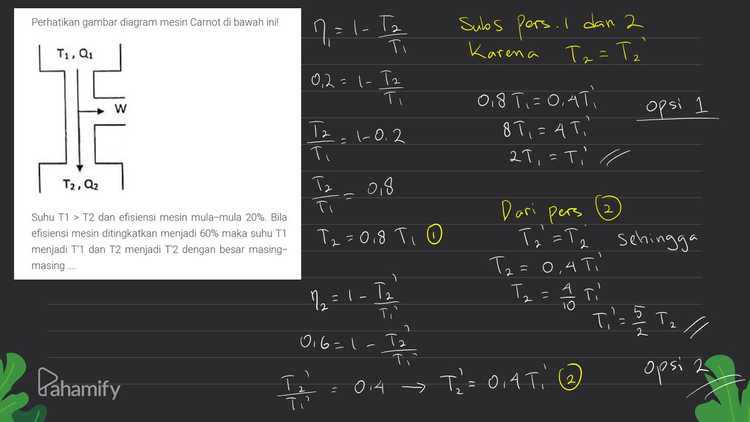 Perhatikan gambar diagram mesin Carnot di bawah ini!
T1, Q1
W
T2, Q2
Suhu T1 > T2 dan efisiensi mesin mula-mula 20%. Bila
efisiensi mesin ditingkatkan menjadi 60% maka suhu T1
menjadi T'1 dan T2 menjadi T'2 dengan besar masing-
masing ....
η₁ = 1 - T₂/T₁
0,2 = 1 - T₂/T₁
T₂/T₁ = 1-0.2
T₂/T₁ = 0,8
T₂ = 0,8 T₁ ①
η₂ = 1 - T₂'/T₁'
0,6 = 1 - T₂'/T₁'
T₂'/T₁' = 0,4 → T₂' = 0,4 T₁' ②
Subs Pers. 1 dan 2
Karena T₂ = T₂'
0,8 T₁ = 0,4 T₁'
8 T₁ = 4 T₁'
2 T₁ = T₁'
opsi 1
Dari pers ②
T₂' = T₂ sehingga
T₂ = 0,4 T₁'
T₂ = 4/10 T₁'
T₁' = 5/2 T₂
opsi 2
Pahamify